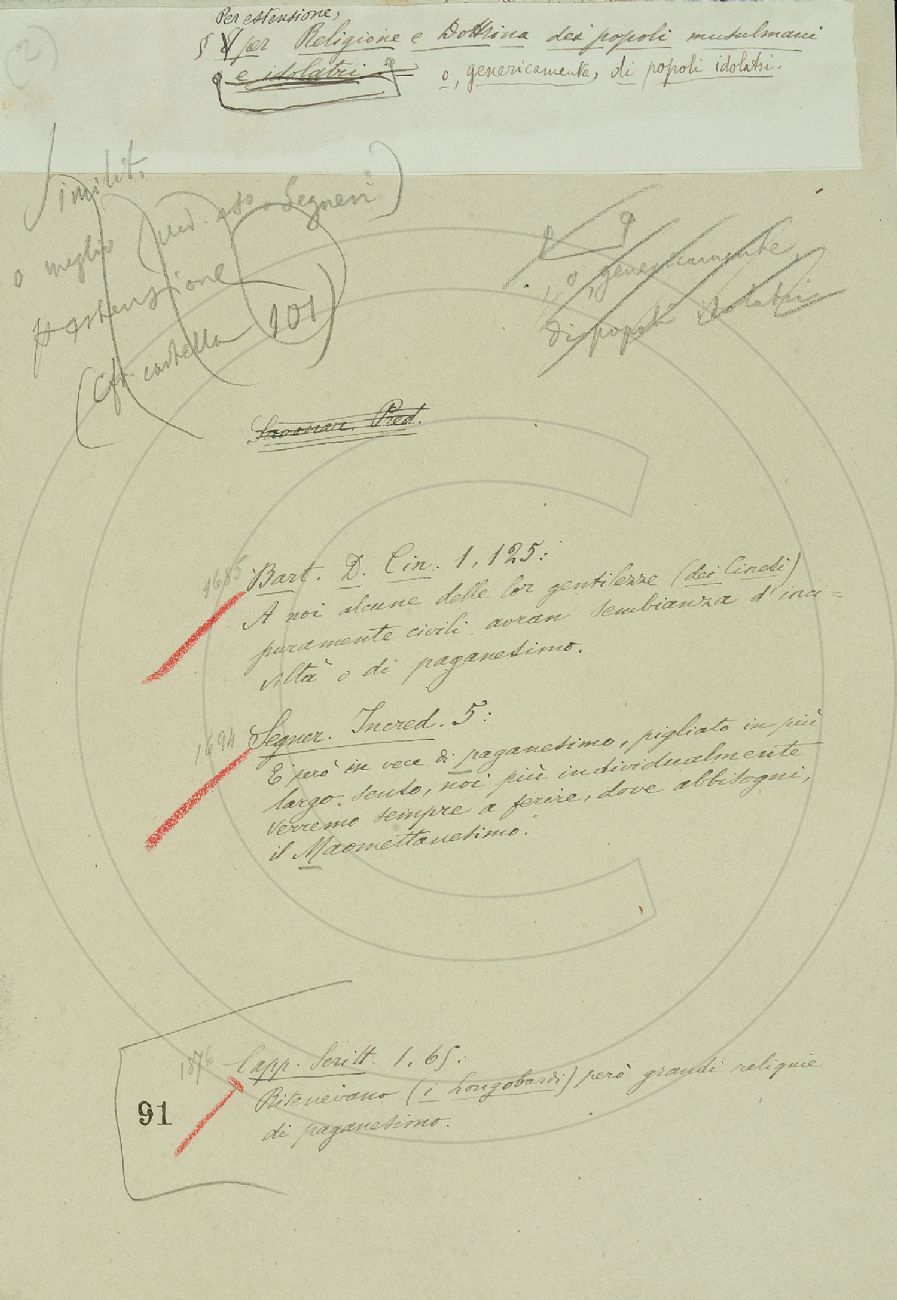 (2)
Per estensione,
§ per Religione e Dottrina dei popoli musulmani
e idolatri o, genericamente, di popoli idolatri.
Similit.
o meglio (Ved. es. Segneri)
p. estensione
(Cfr. cartella 101)
, o, genericamente
di popoli idolatri
Savonar. Pred.
1685 Bart. D. Cin. 1. 125:
A noi alcune delle lor gentilezze (dei Cinesi)
puramente civili avran sembianza d'inci=
viltà o di paganesimo.
1694 Segner. Incred. 5:
E però in vece di paganesimo, pigliato in più
largo senso, noi più individualmente
verremo sempre a ferire, dove abbisogni,
il Maomettanesimo.
1876 Capp. Scritt. 1. 65:
Ritenevano (i Longobardi) però grandi reliquie
di paganesimo.
91